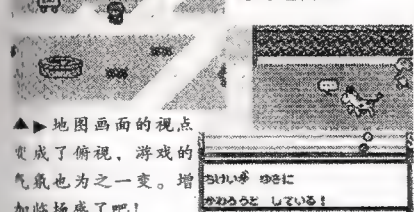 ▲▶地图画面的视点
变成了俯视，游戏的
气氛也为之一变。增
加临场感了吧！
ゆさに
かわろうと している！